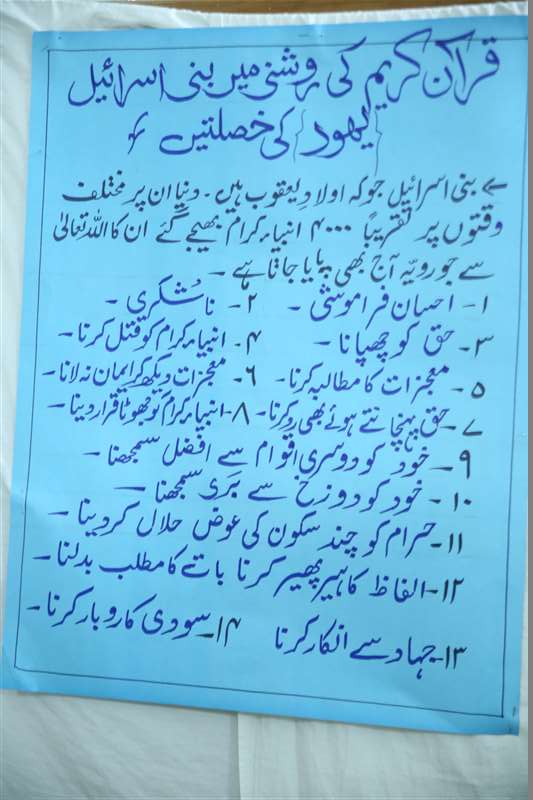 قرآن کریم کی روشنی میں بنی اسرائیل
{یہود} کی خصلتیں
بنی اسرائیل جو کہ اولادِ یعقوب ہیں۔ دنیا ان پر مختلف
وقتوں پر تقریباً ۴۰۰۰ انبیاء کرام بھیجے گئے ان کا اللہ تعالیٰ
سے جو رویّہ آج بھی پایا جاتا ہے ۔
۱- احسان فراموشی ۔ ۲- ناشکری ۔
۳- حق کو چھپانا ۔ ۴- انبیاء کرام کو قتل کرنا ۔
۵- معجزات کا مطالبہ کرنا ۔ ۶- معجزات دیکھ کر ایمان نہ لانا ۔
۷- حق پہچانتے ہوئے بھی رد کرنا ۔ ۸- انبیاء کرام کو جھوٹا قرار دینا ۔
۹- خود کو دوسری اقوام سے افضل سمجھنا ۔
۱۰- خود کو دوزخ سے بری سمجھنا ۔
۱۱- حرام کو چند سکون کی عوض حلال کر دینا ۔
۱۲- الفاظ کا ہیر پھیر کرنا بات کا مطلب بدلنا ۔
۱۳- جہاد سے انکار کرنا ۱۴- سودی کاروبار کرنا ۔